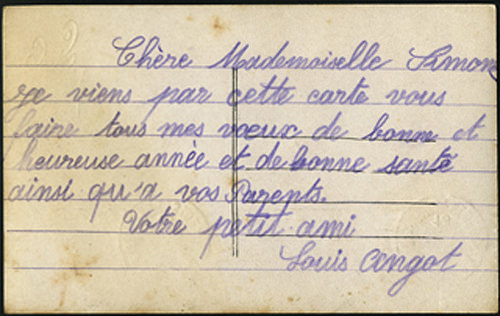 Chère Mademoiselle Simone
Je viens par cette carte vous
faire tous mes vœux de bonne et
heureuse année et de bonne santé
ainsi qu'a vos Parents.
Votre petit ami
Louis Angot